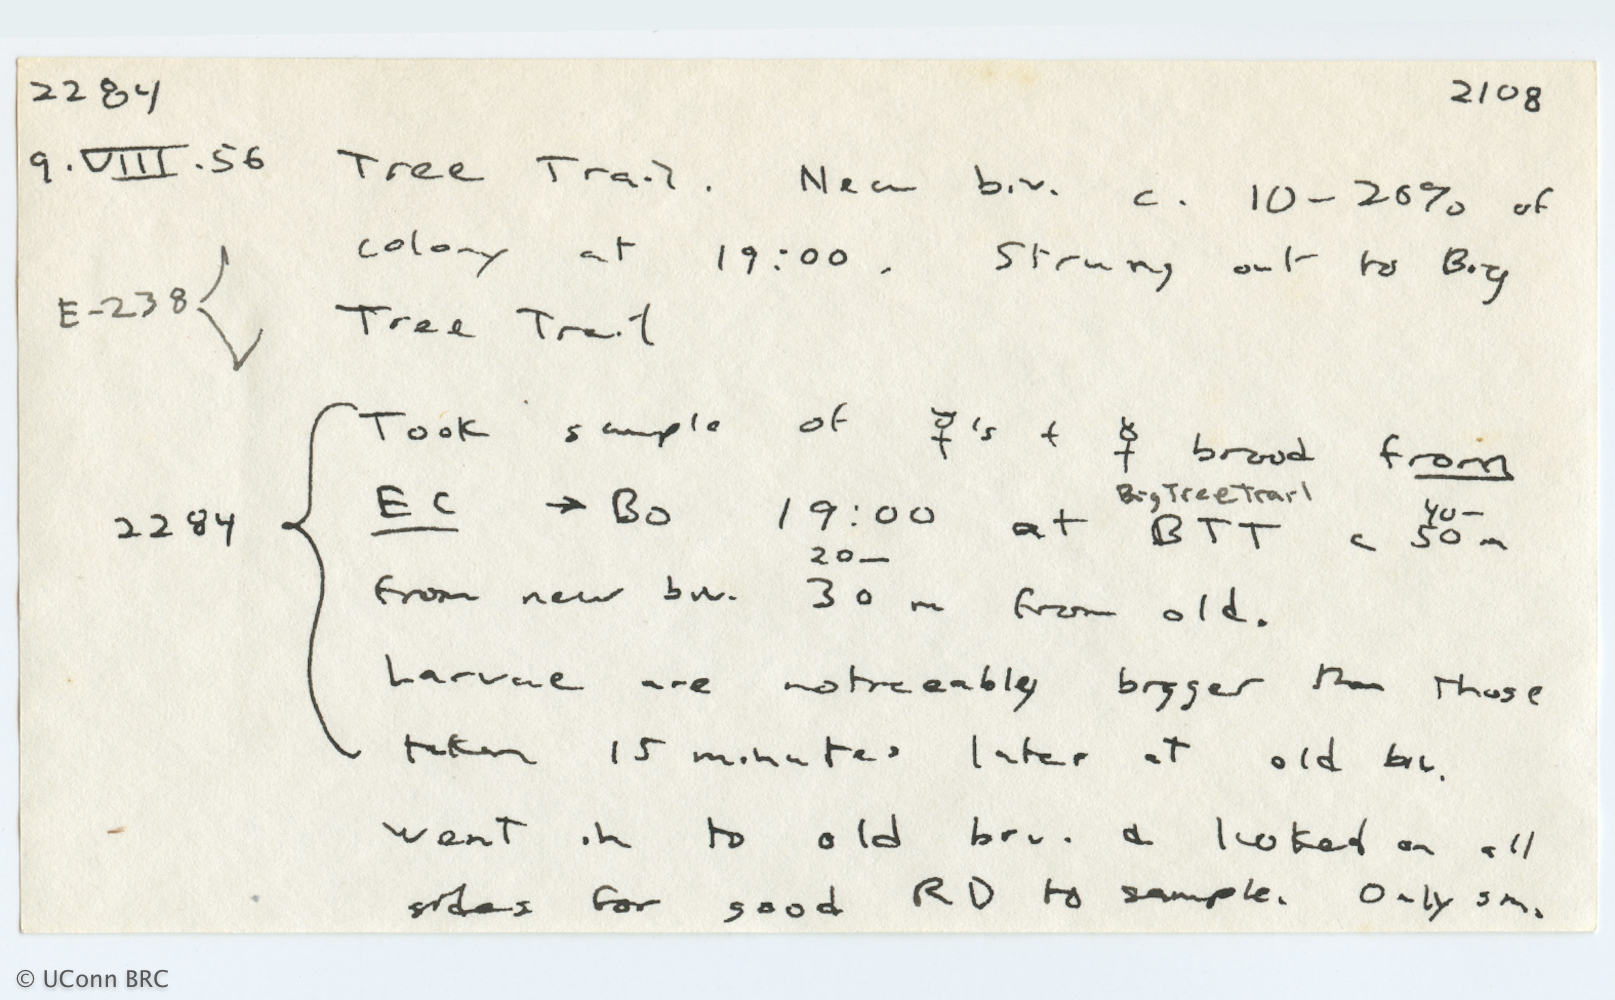 2284 2108
9.VIII.56 Tree Trail. New biv. c. 10-20% of
colony at 19:00. Strung out to Big
E-238
Tree Trail
Took sample of ☿'s + ☿ brood from
Big Tree Trail
EC → Bo 19:00 at BTT c 40-50 m
from new biv. 20-30 m from old.
2284
Larvae are noticeably bigger than those
taken 15 minutes later at old biv.
Went in to old biv. & looked on all
sides for good RD to sample. Only sm.
© UConn BRC